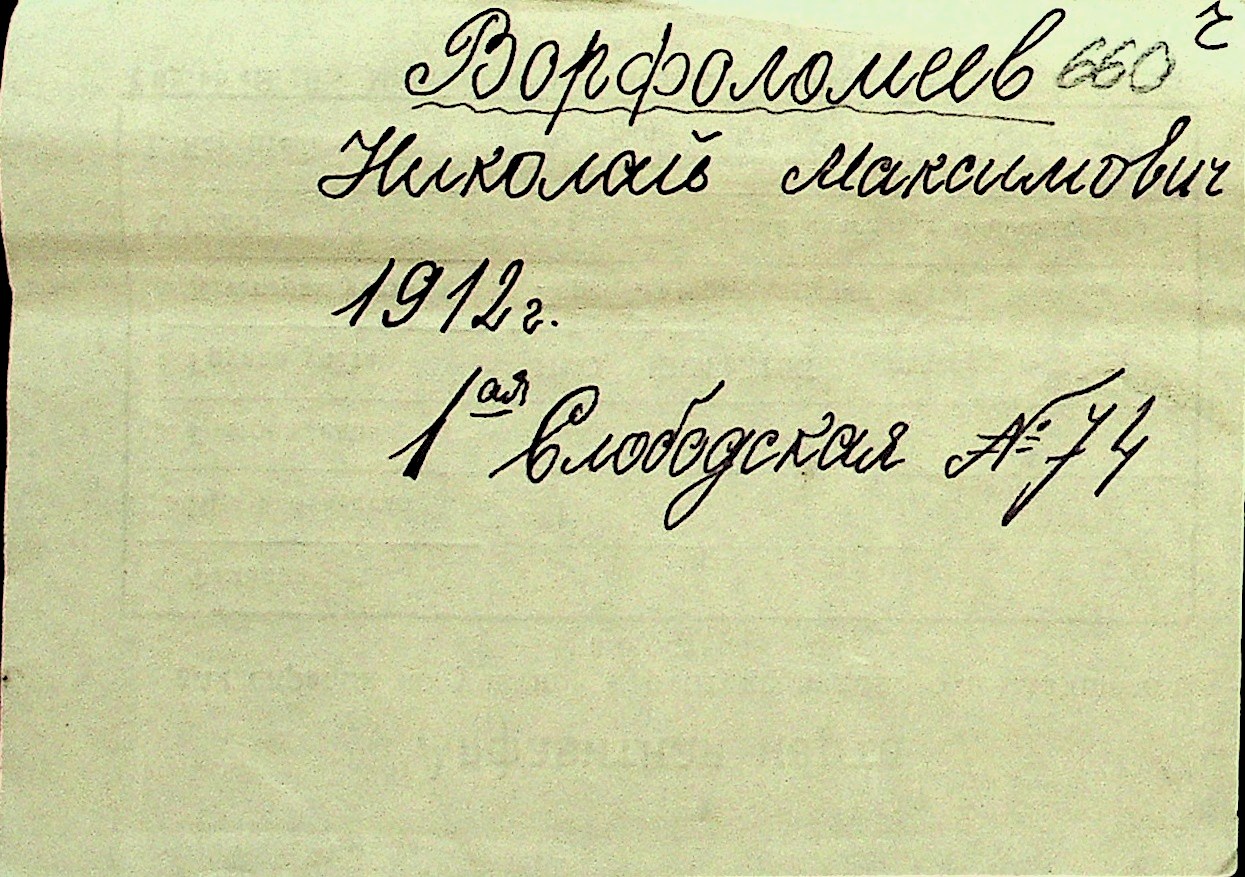 Ворфоломеев 660
Николай Максимович
1912 г.
1ая Слободская № 74